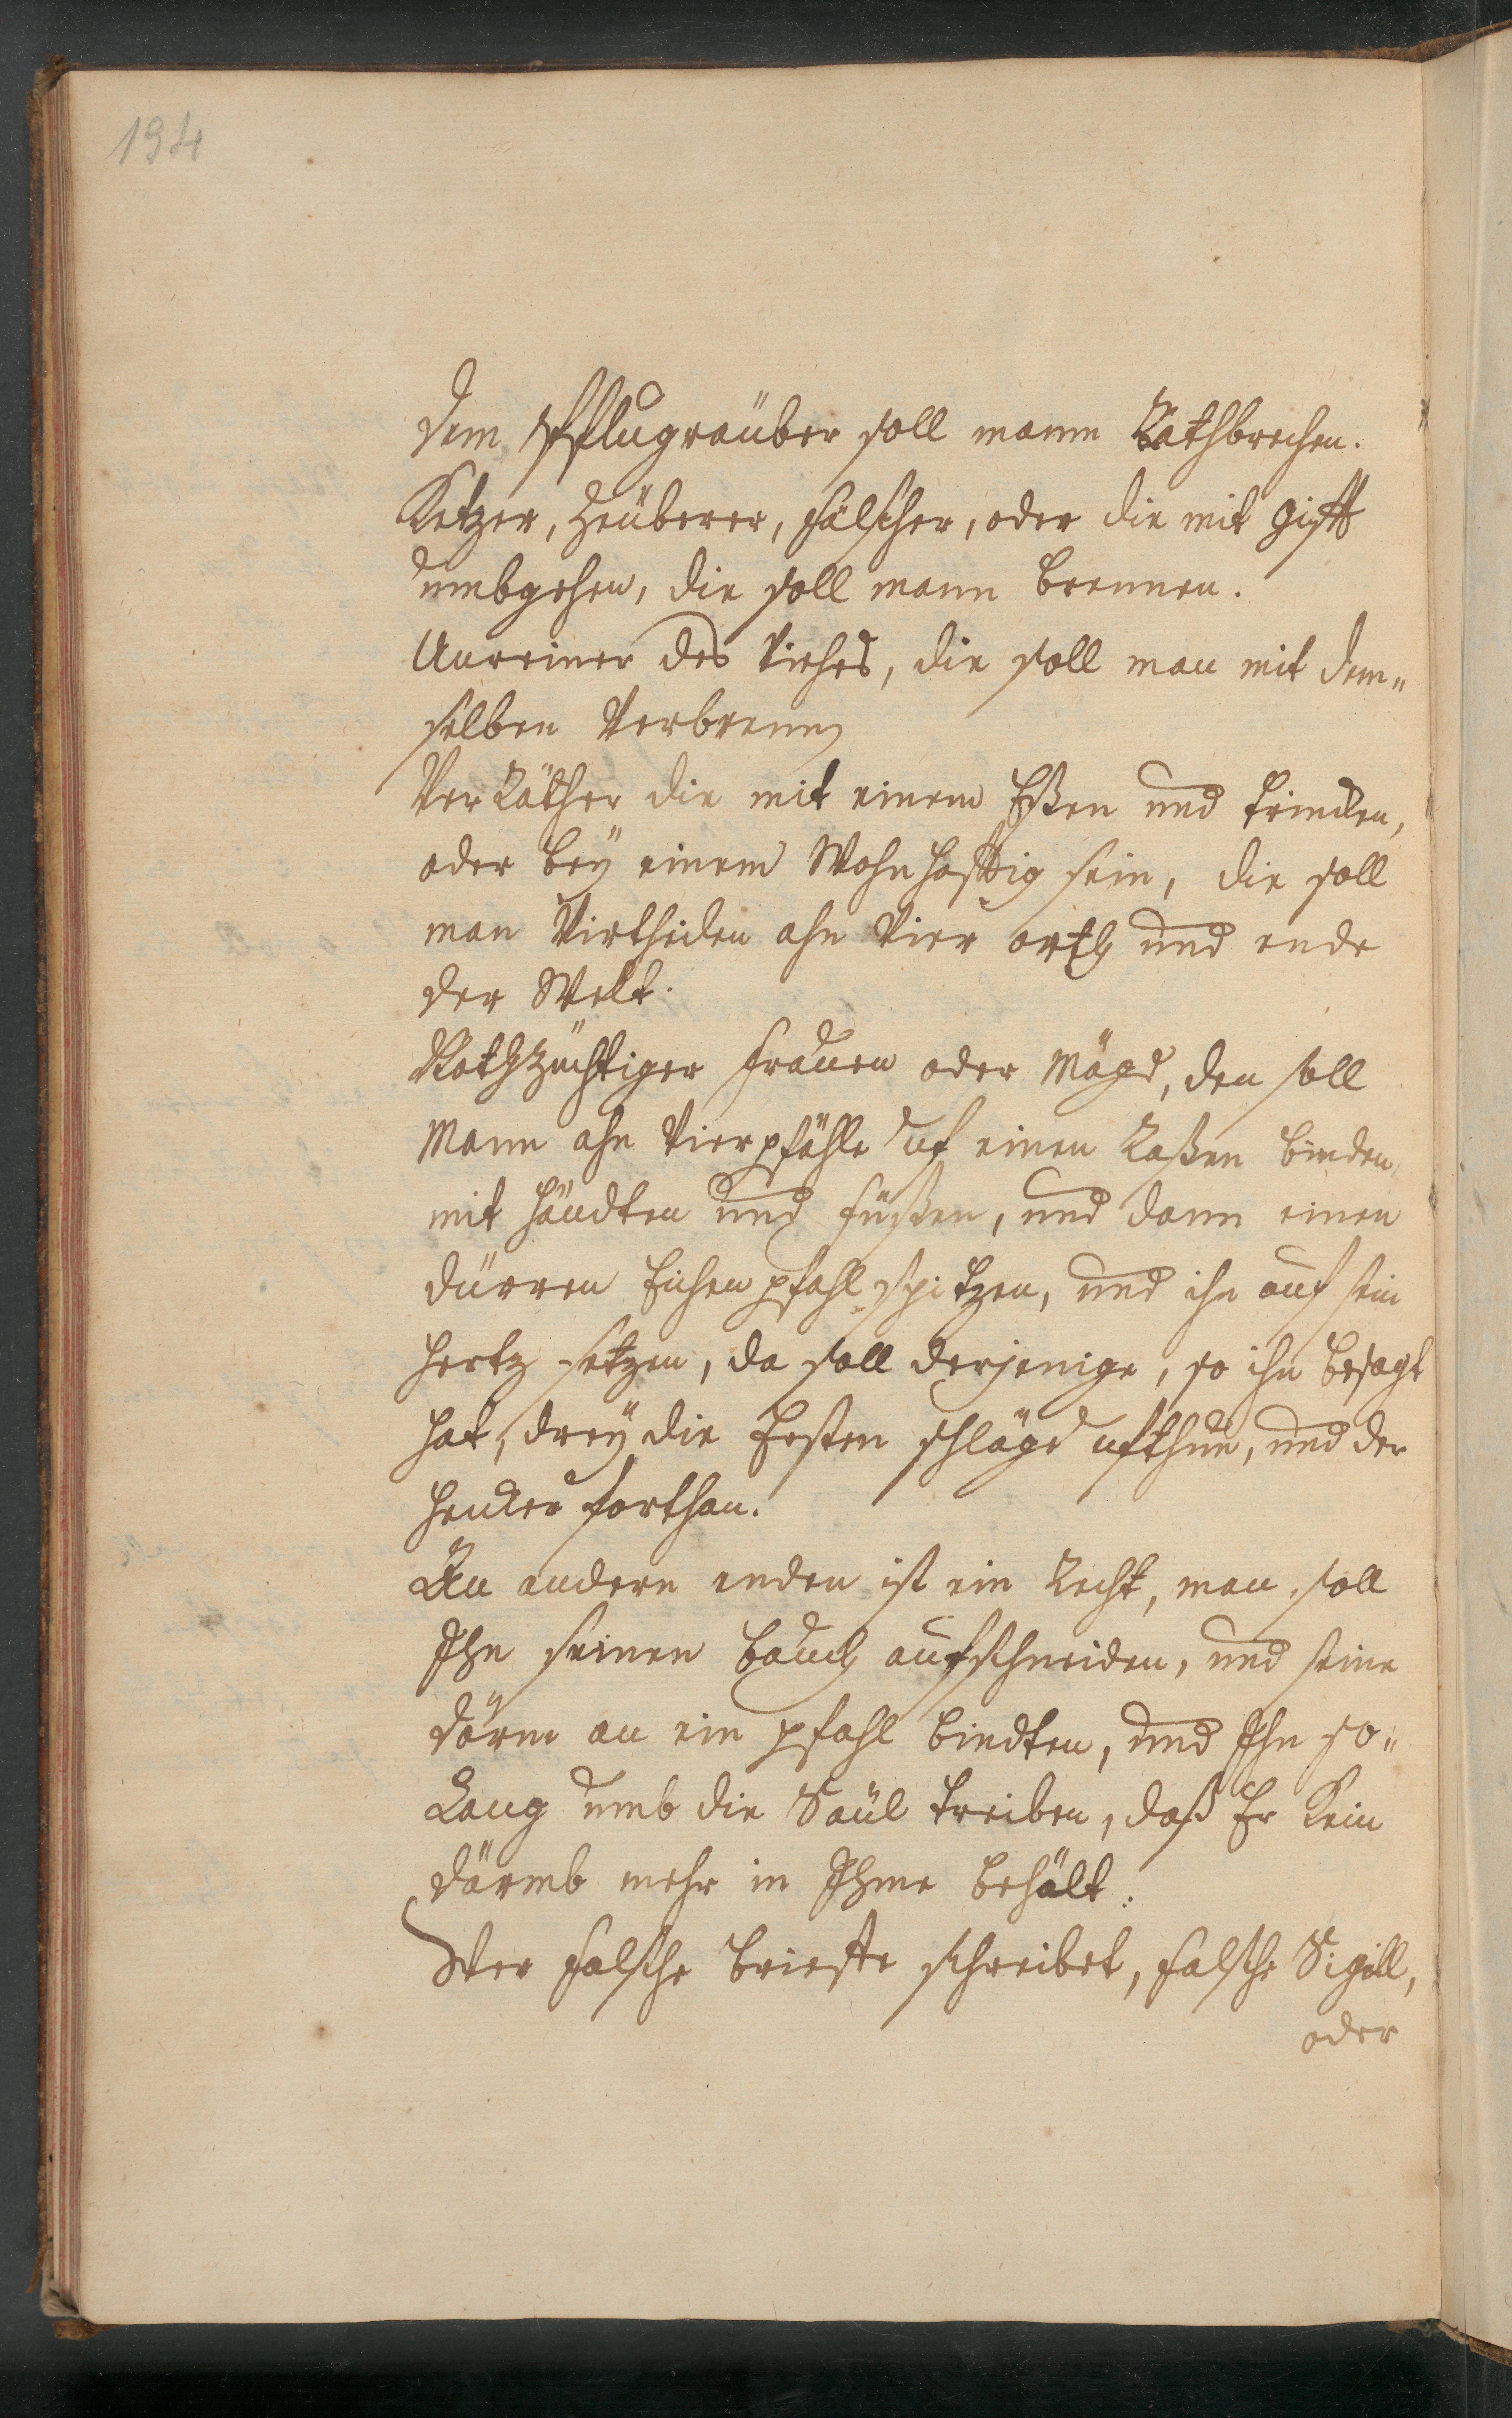 194
Dem Pflugräuber soll mann Rathbrechen.
Ketzer, Zeüberer, fälscher, oder die mit gifft
umbgehen, die soll mann brennen.
Unreiner des Viehes, die soll man mit dem„
selben Verbrennen
Verräther die mit einem Eßen und trincken,
oder bey einem Wohnhafftig sein, die soll
man Virtheilen ahn Vier orth und ende
der Welt.
Nothzüchtiger frauen oder Mägd, den soll
Mann ahn Vier pfähle uf einen Raßen binden,
mit händten und füßen, und dann einen
dürren Eichen pfahl spitzen, und ihn auf sein
hertz setzen, da soll derjenige, so ihn besagt
hat, drey die Ersten schläge ufthun, und der
hencker forthan.
An andern enden ist ein Recht, man soll
Ihn seinen bauch aufschneiden, und seine
därm an ein pfahl bindten, und Ihn so„
Lang umb die Saül treiben, daß Er kein
därmb mehr in Ihme behält.
Wer falsche brieffe schreibet, falsche Sigill,
oder